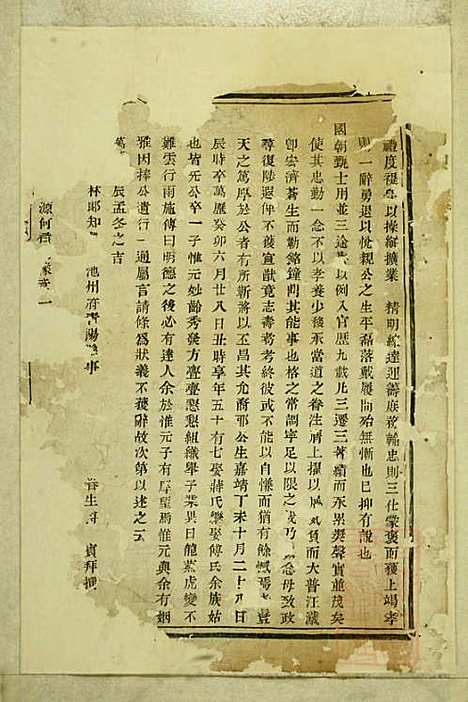 禮度褆以操縱擴業 精明練達迎壽族務輸忠則三仕蒙褒而獲上竭孝
則一辭勇退以悅親公之生平磊落戴履間殆無慚也已抑有說也
國朝甄士用並三途以例入官歷九載凡三遷三著績而永果奕聲實並茂矣
使其忠勤一念不以孝養少移承當道之眷注肩上擢以負而大普江瀛
卽宏濟蒼生而勒銘鐘鼎其能事也格之常調寧足以限之乃念母致政
尋復陟遐併不獲宣猷竟志壽考考終彼或不能以自慊而猶有餘憾焉豈
天之篤厚於公者有所靳將以丕昌其允裔耶公生嘉靖丁未十月二十九日
辰時卒萬曆癸卯六月廿八日丑時享年五十有七娶蔣氏繼娶傅氏余族姑
也皆先公卒一子惟元妙齡秀發方亹亹懇懇組織舉子業異日龍蒸虎變不
難雲行雨施傳曰明德之後必有達人余於惟元子有厚望焉惟元與余有姻
雅因捧公遺行一通屬言請條爲狀義不獲辭故次第以述之云
萬辰孟冬之吉
林郎知 池州府青陽事 眷生 賓拜撰
源何 卷 一